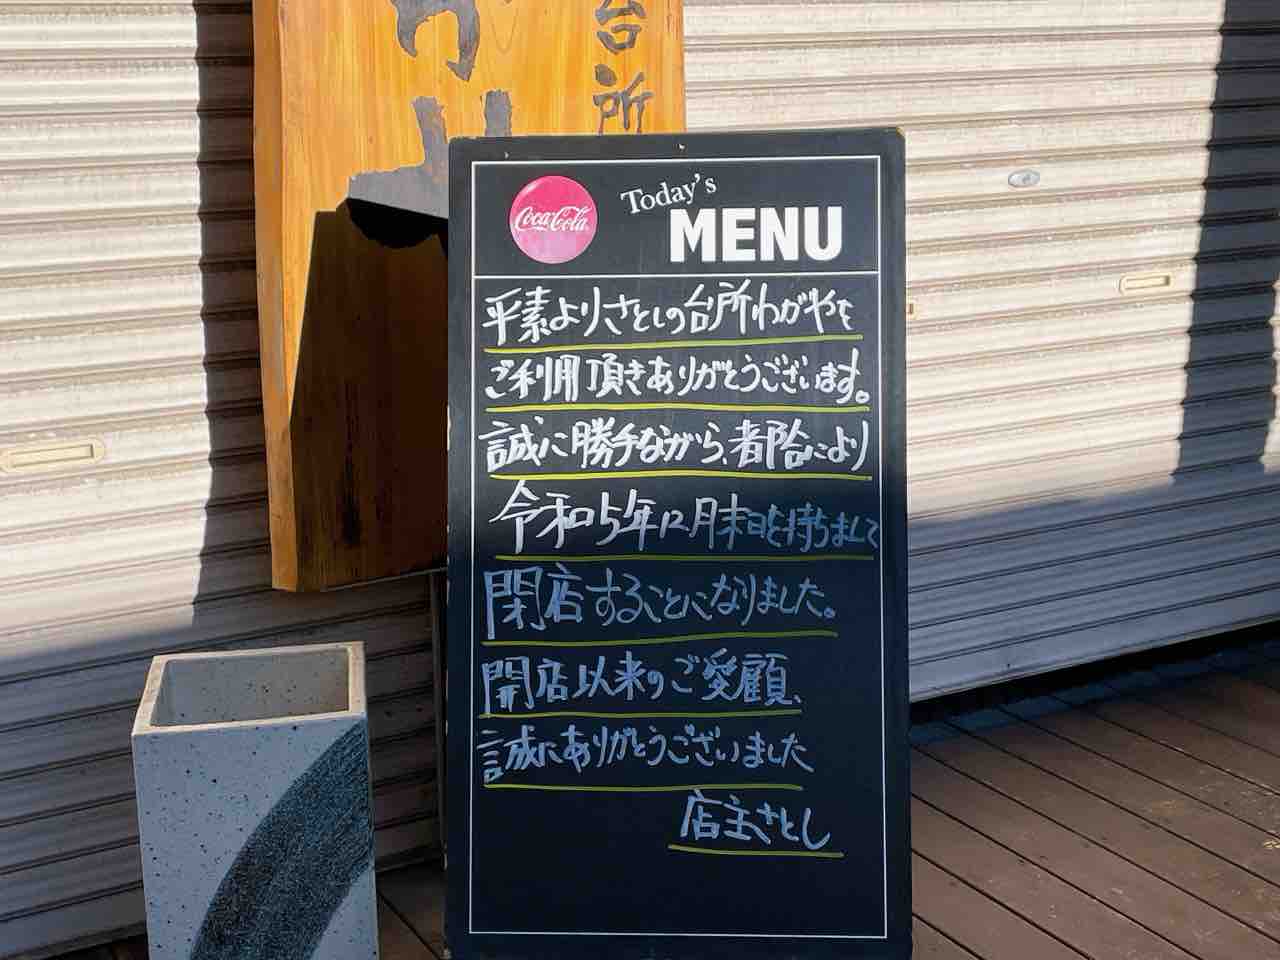 台所
Coca-Cola
Today's
MENU
平素よりさとしの台所わがやを
ご利用頂きありがとうございます。
誠に勝手ながら、都合により
令和5年12月末日を持ちまして
閉店することになりました。
開店以来のご愛顧、
誠にありがとうございました
店主さとし